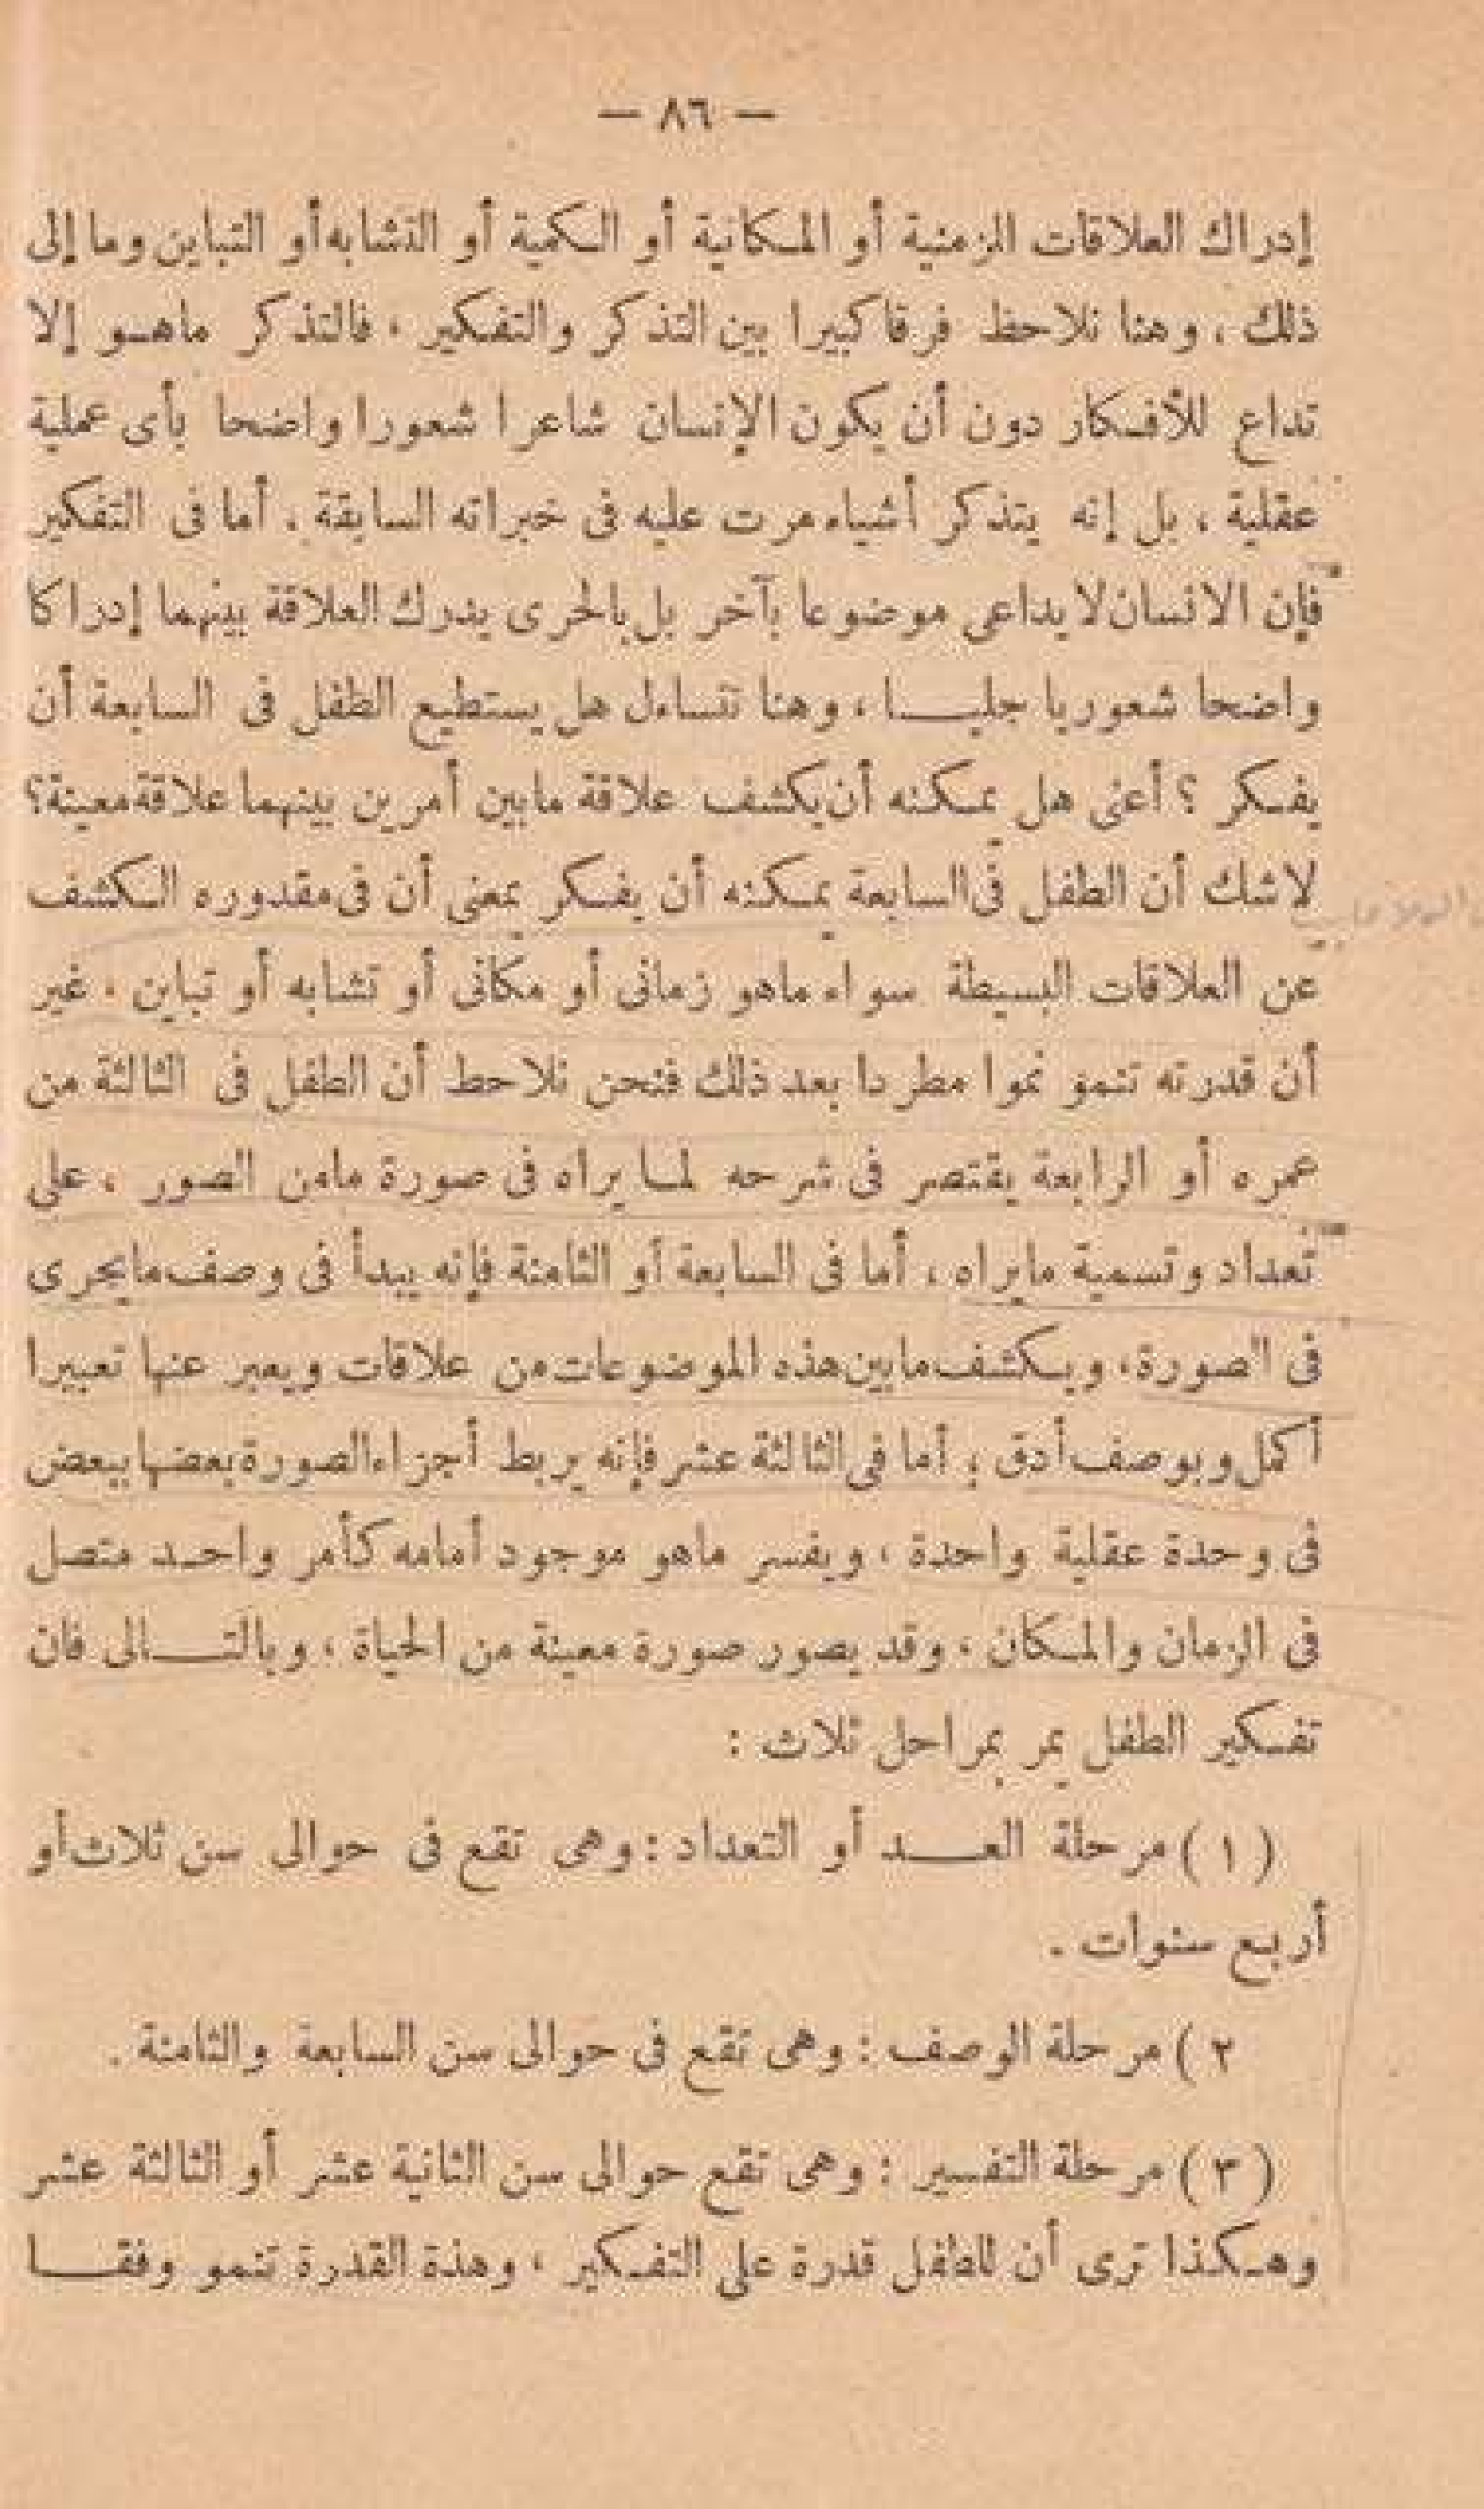 — ٨٦ —
إدراك العلاقات الزمنية أو المكانية أو الكمية أو التشابه أو التباين وما إلى
ذلك ، وهنا نلاحظ فرقا كبيرا بين التذكر والتفكير ، فالتذكر ماهو إلا
تداع للأفكار دون أن يكون الإنسان شاعرا شعورا واضحا بأى عملية
عقلية ، بل إنه يتذكر أشياء مرت عليه فى خبراته السابقة . أما فى التفكير
فإن الانسان لا يداعى موضوعا بآخر بل بالحرى يدرك العلاقة بينهما إدراكا
واضحا شعوريا جليا ، وهنا نتساءل هل يستطيع الطفل فى السابعة أن
يفكر ؟ أعنى هل يمكنه أن يكشف علاقة مابين أمرين بينهما علاقة معينة؟
لاشك أن الطفل فى السابعة يمكنه أن يفكر بمعنى أن فى مقدوره الكشف
عن العلاقات البسيطة سواء ماهو زمانى أو مكانى أو تشابه أو تباين . غير
أن قدرته تنمو نموا مطردا بعد ذلك فنحن نلاحظ أن الطفل فى الثالثة من
عمره أو الرابعة يقتصر فى شرحه لما يراه فى صورة مامن الصور ، على
تعداد وتسمية مايراه ، أما فى السابعة أو الثامنة فإنه يبدأ فى وصف مايجرى
فى الصورة ، ويكشف مابين هذه الموضوعات من علاقات ويعبر عنها تعبيرا
أكمل وبوصف أدق ; أما فى الثالثة عشر فإنه يربط أجزاء الصورة بعضها ببعض
فى وحدة عقلية واحدة ، ويفسر ماهو موجود أمامه كأمر واحد متصل
فى الزمان والمكان ، وقد يصور صورة معينة من الحياة ، وبالتالى فان
تفكير الطفل يمر بمراحل ثلاث :
( ١ ) مرحلة العد أو التعداد : وهى تقع فى حوالى سن ثلاث أو
أربع سنوات .
٢ ) مرحلة الوصف : وهى تقع فى حوالى سن السابعة والثامنة .
( ٣ ) مرحلة التفسير : وهى تقع حوالى سن الثانية عشر أو الثالثة عشر
وهكذا ترى أن للطفل قدرة على التفكير ، وهذة القدرة تنمو وفقا